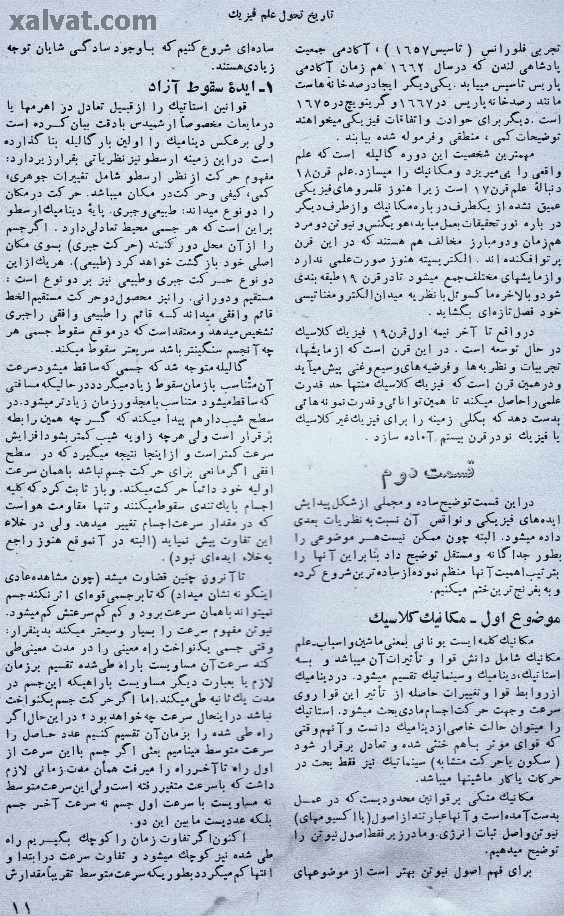 xalvat.com
تاریخ تحول علم فیزیک
تجربی فلورانس ( تاسیس ۱٦٥۷ ) ، آکادمی جمعیت
پادشاهی لندن که درسال ۱٦٦۲ هم زمان آکادمی
پاریس تاسیس میباید . یکی دیگر ایجادرصدخانه هاست
مانند رصدخانه پاریس در ۱٦٦۷ و گرینویچ در ۱٦۷٥
است . دیگر برای حوادث و اتفاقات فیزیکی میخواهند
توضیحات کمی ، منطقی و فرموله شده بیابند .
مهمترین شخصیت این دوره گالیله است که علم
واقعی را پی میریزد و مکانیک را میسازد. علم قرن۱۸
دنبالهٔ علم قرن۱۷ است زیرا هنوز قلمروهای فیزیکی
عمیق نشده از یکطرف درباره مکانیک و ازطرف دیگر
در باره نور تحقیقات بعمل میاید، هویگنس و نیوتن دو مرد
هم زمان و دومبارز مخالف هم هستند که در این قرن
پرتوافکنده اند . الکتریسیته هنوز صورت علمی ندارد
و ازمایشهای مختلف جمع میشود تا در قرن ۱۹ طبقه بندی
شود و بالاخره ماکسوئل با نظریه میدان الکترومغناتیسی
خود فصل تازه ای بگشاید .
درواقع تا آخر نیمه اول قرن۱۹ فیزیک کلاسیک
در حال توسعه است . در این قرن است که ازمایشها،
تجربیات و نظریه ها و فرضیه های وسیع وغنی پیش میآید
و در همین قرن است که فیزیک کلاسیک منتها حد قدرت
علمی را حاصل میکند تا همین توانائی و قدرت نمونه هائی
بدست دهد که بکلی زمینه را برای فیزیک غیر کلاسیک
یا فیزیک نو در قرن بیستم آماده سازد .
قسمت دوم
دراین قسمت توضیح ساده و مجملی از شکل پیدایش
ایده های فیزیکی و نواقص آن نسبت به نظریات بعدی
داده میشود. البته چون ممکن نیست هر موضوعی را
بطور جداگانه و مستقل توضیح داد بنابراین آنها را
بترتیب اهمیت آنها منظم نموده از ساده ترین شروع کرده
و به بغرنج ترین ختم میکنیم.
موضوع اول ـ مکانیک کلاسیک
مکانیک کلمه ایست یونانی بمعنی ماشین و اسباب ـ علم
مکانیک شامل دانش قوا و تأثیرات آن میباشد و به
استاتیک، دینامیک و سینماتیک تقسیم میشود. دردینامیک
از روابط قوا و تغییرات حاصله از تأثیر این قوا روی
سرعت و جهت حرکت اجسام مادی بحث میشود. استاتیک
را میتوان حالت خاصی از دینامیک دانست و آنهم وقتی
که قوای موثر باهم خنثی شده و تعادل برقرار شود
( سکون یا حرکت متشابه ) سینماتیک نیز فقط بحث در
حرکات یا کار ماشینها میباشد.
مکانیک متکی بر قوانین محدودیست که در عمل
بدست آمده است و آنها عبارتند از اصول (یا اکسیومهای)
نیوتن و اصل ثبات انرژی. و ما در زیر فقط اصول نیوتن را
توضیح میدهیم.
برای فهم اصول نیوتن بهتر است از موضوعهای
ساده ای شروع کنیم که باوجود سادگی شایان توجه
زیادی هستند.
۱ـ ایدهٔ سقوط آزاد
قوانین استاتیک را از قبیل تعادل در اهرمها یا
درمایعات مخصوصاً ارشمیدس با دقت بیان کرده است
ولی برعکس دینامیک را اولین بار گالیله بنا گذارده
است در این زمینه ارسطو نیز نظریاتی بقرار زیر دارد:
مفهوم حرکت از نظر ارسطو شامل تغییرات جوهری؛
کمی، کیفی و حرکت در مکان میباشد. حرکت در مکان
را دو نوع میداند: طبیعی و جبری. پایهٔ دینامیک ارسطو
براین است که هر جسمی محیط تعادلی دارد . اگر جسم
را از آن محل دور کنند (حرکت جبری) بسوی مکان
اصلی خود بازگشت خواهد کرد (طبیعی). هریک از این
دو نوع حرکت جبری و طبیعی نیز بر دو نوع است :
مستقیم و دورانی. را نیز محصول دو حرکت مستقیم الخط
قائم و افقی میداند که قائم را طبیعی وافقی راجبری
تشخیص میدهد و معتقد است که درموقع سقوط جسمی هر
چه آنجسم سنگینتر باشد سریعتر سقوط میکند.
گالیله متوجه شد که جسمی که ساقط میشود سرعت
آن متناسب بازمان سقوط زیاد میگردد در حالیکه مسافتی
که ساقط میشود متناسب بامجذور زمان زیادتر میشود. در
سطح شیب دار هم پیدا میکند که گرچه همین رابطه
برقرار است ولی هرچه زاویه شیب کمتر بشود افزایش
سرعت کمتر است و از اینجا نتیجه میگیرد که در سطح
افقی اگر مانعی برای حرکت جسم نباشد باهمان سرعت
اولیه خود دائماً حرکت میکند. و باز ثابت کرد که کلیه
اجسام بایک تندی سقوط میکنند و تنها مقاومت هواست
که در مقدار سرعت اجسام تغییر میدهد، ولی در خلاء
این تفاوت پیش نمیاید (البته در آنموقع هنوز راجع
به خلاء ایده ای نبود) .
تا آنروز چنین قضاوت میشد (چون مشاهده عادی
اینگونه نشان میداد) که تا بر جسمی قوه ای اثر نکند جسم
نمیتواند باهمان سرعت برود و کم کم سرعتش کم میشود.
نیوتن مفهوم سرعت را بسیار وسیعتر میکند بدینقرار:
وقتی جسمی یکنواخت راه معینی را در مدت معینی طی
کند سرعت آن مساویست با راه طی شده تقسیم بر زمان
لازم یا بعبارت دیگر مساویست با راهیکه این جسم در
مدت یک ثانیه طی میکند. اما اگر حرکت جسم یکنواخت
نباشد دراینحال سرعت چه خواهد بود؟ دراین حال اگر
راه طی شده را بزمان آن تقسیم کنیم عدد حاصل را
سرعت متوسط مینامیم یعنی اگر جسم با این سرعت از
اول راه تا آخر راه را میرفت همان مدت زمانی لازم
داشت که باسرعت متغیر رفته است ولی این سرعت متوسط
نه مساویست با سرعت اول جسم نه سرعت آخر جسم
بلکه عددیست مابین این دو.
اکنون اگر تفاوت زمان را کوچک بگیریم راه
طی شده نیز کوچک میشود و تفاوت سرعت درابتدا و
انتها کم میگردد بطوریکه سرعت متوسط تقریباً مقدارش
۱۱